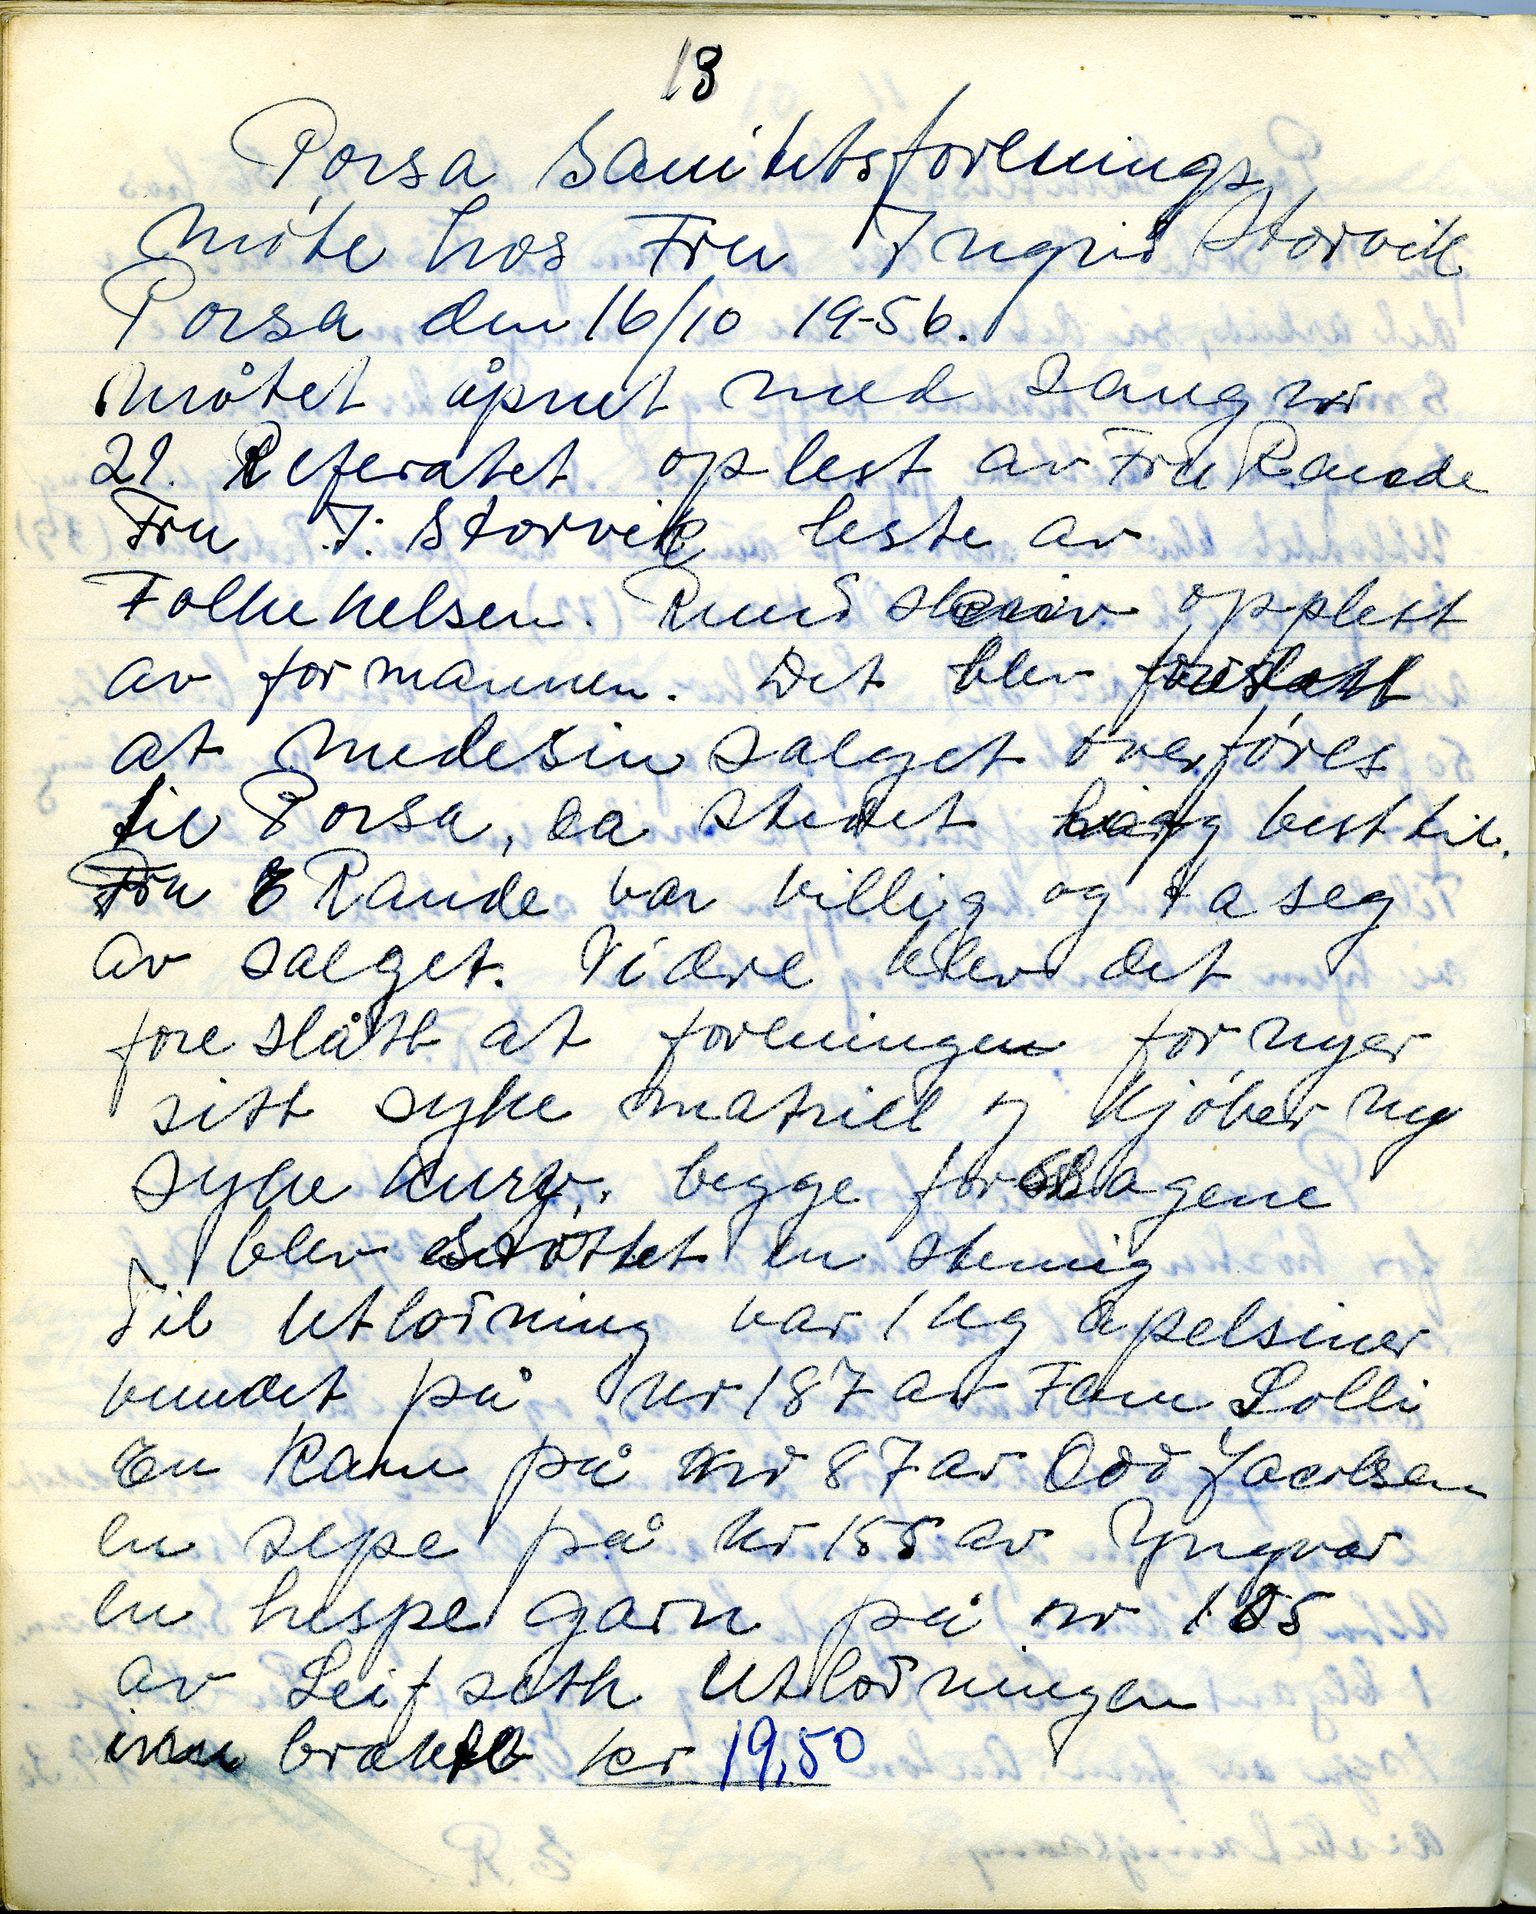 13
Porsa Sanitetsforenings
møte hos Fru Ingrid Storvik
Porsa den 16/10 19-56.
møtet åpnet med sang nr
21. Referatet oplest av Fru Rande
Fru I. Storvik leste av
Folkehelsen. Rundskriv opplest
av formannen. Det blev foreslått
at medesin salget overføres
til Porsa, da stedet ligg best til.
Fru E Rande var villig og ta seg
av salget. Vidre blev det
fore slått at foreningen fornyer
sitt syke matriel og kjøber ny
syke kurv, begge forslagene
blev støttet en stemig
Til Utlodning var 1 kg apelsiner
vundet på nr 187 av Fam Lolli
En kam på nr 87 av Odd Jacobsen
en sepe på nr 155 av Yngvar
en hespe garn på nr 185
av Leif seth Utlodningen
inn brakte kr 19,50